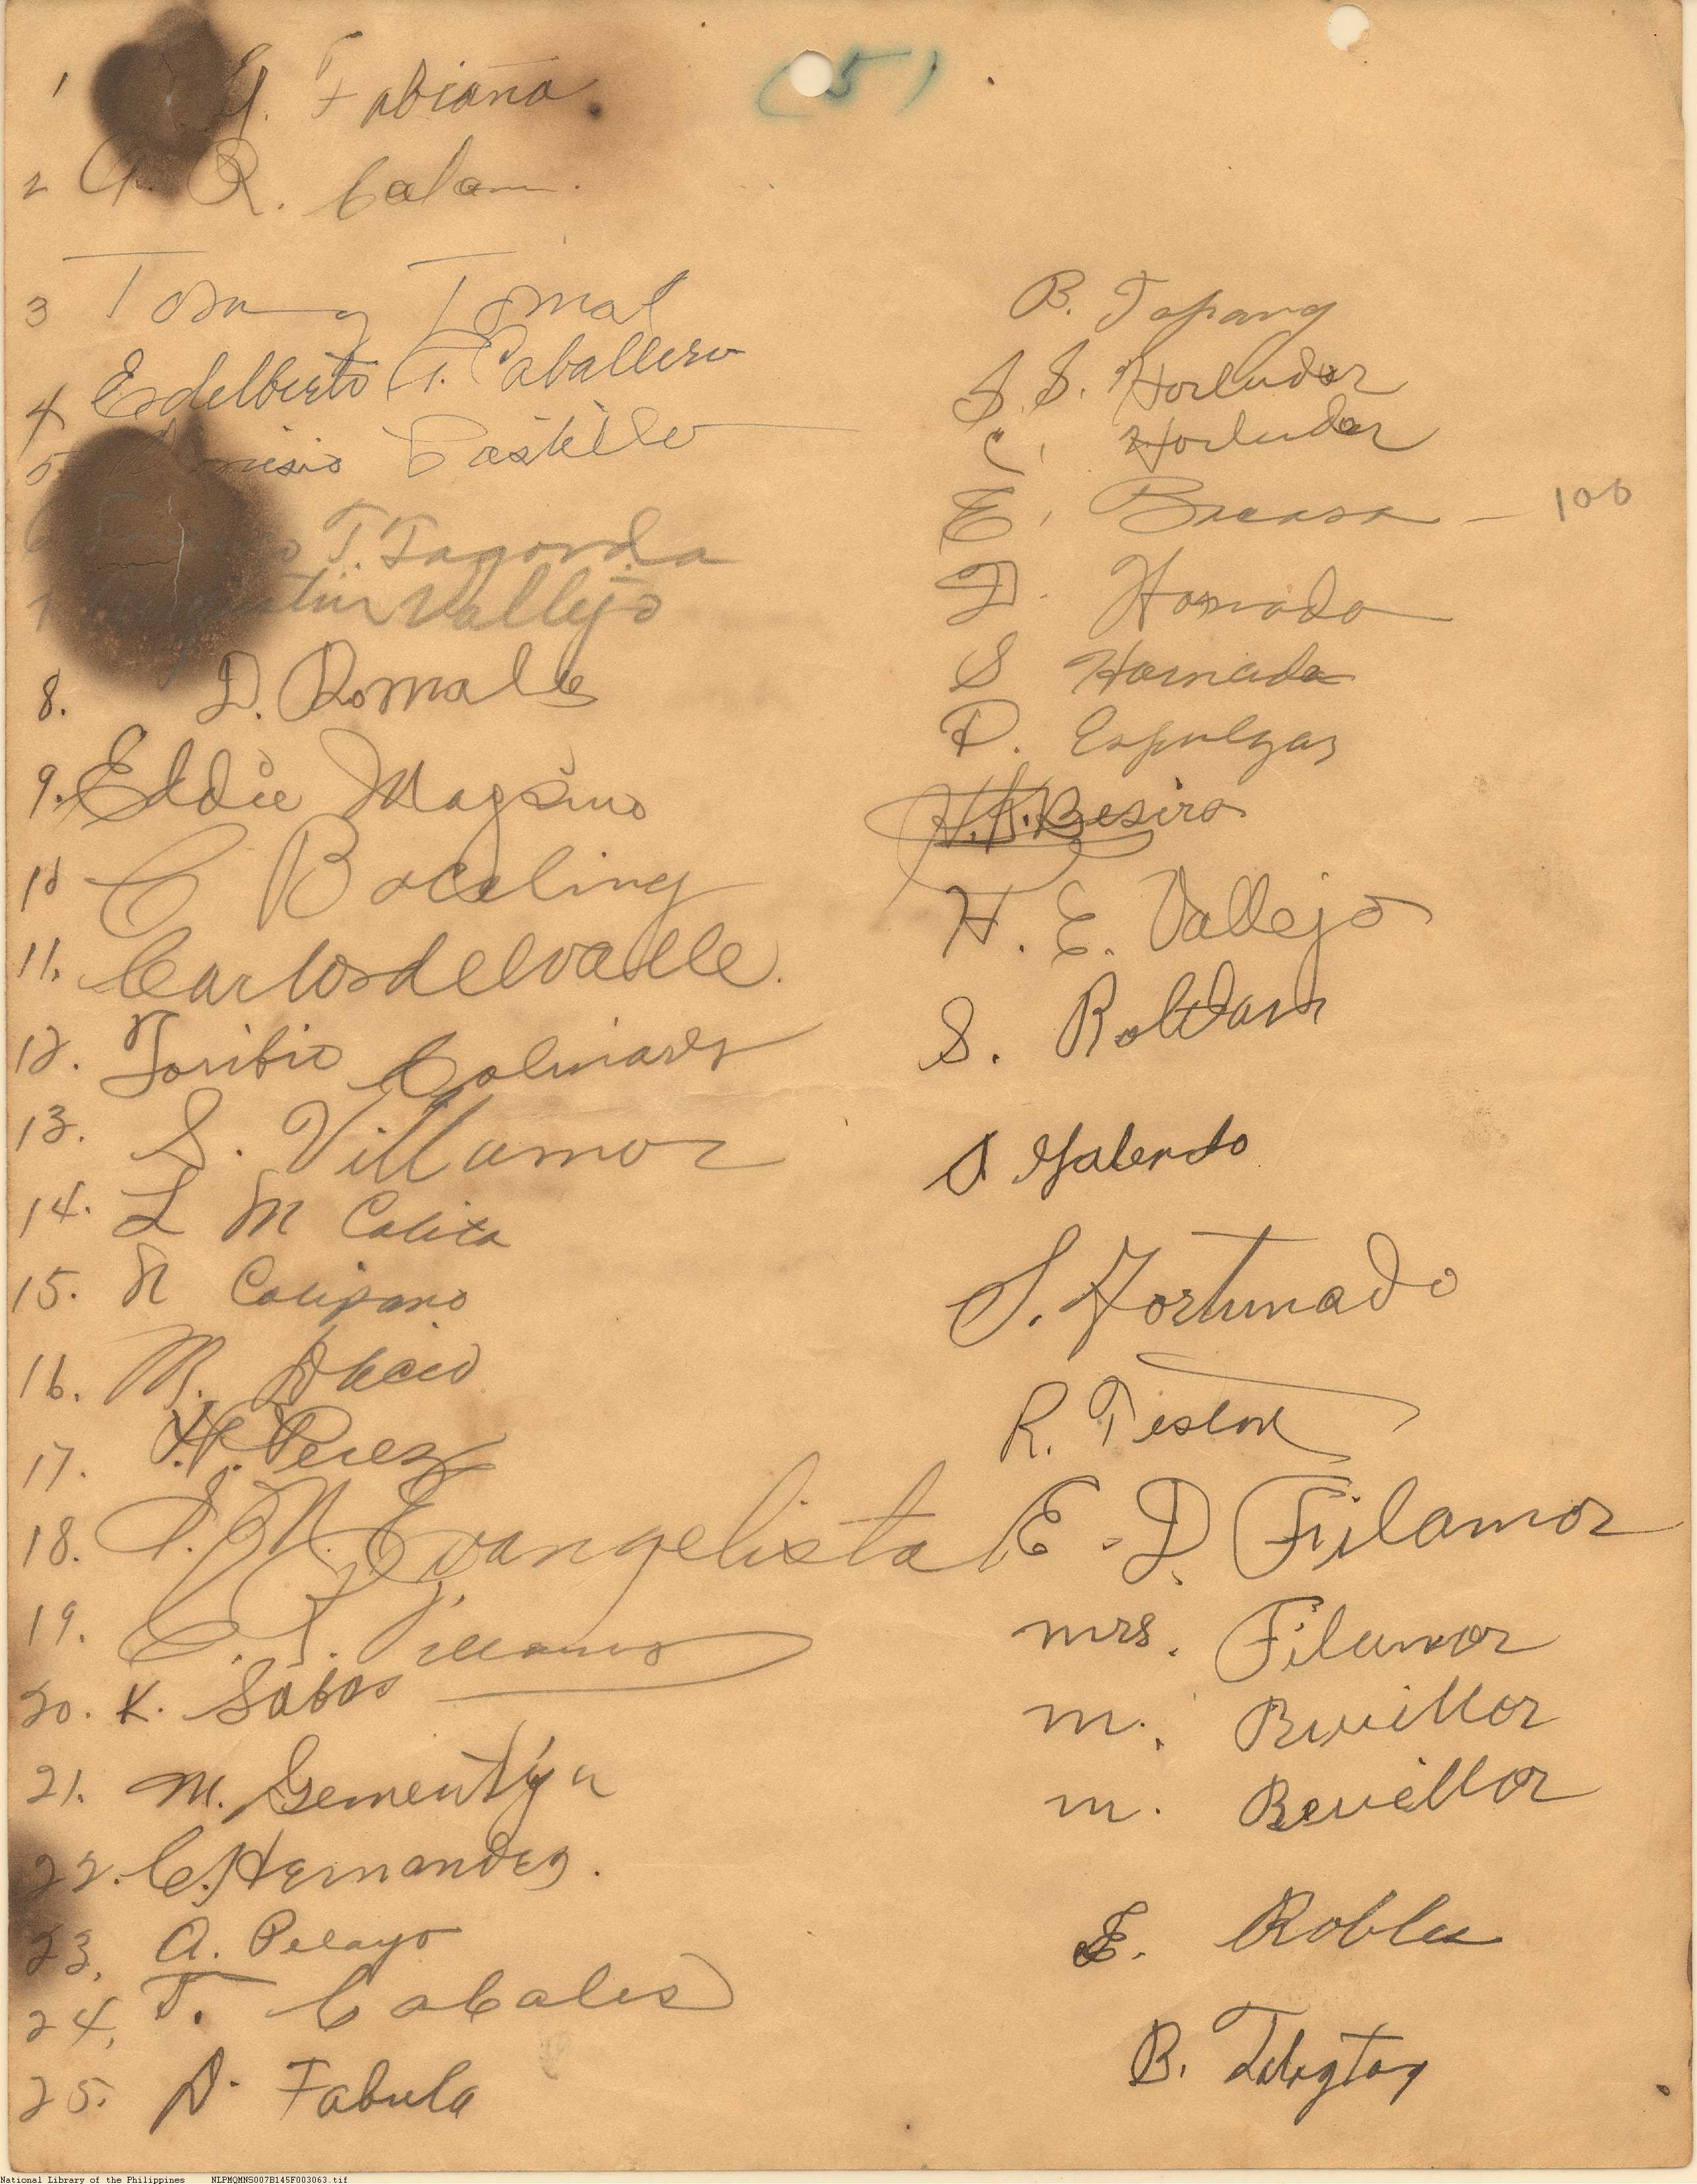 (5)
1 G. Fabiana
2 G. R. Calam
3 Tomal
4 Edelberto G. Caballero
5 Castillo
T. Tagorda
Vallejo
8. D. Romale
9. Eddie Magsino
10 C Baceling
11. Carlos del valle.
12. Toribio Colinares
13. S. Villamor
14. L M Calica
15. N Calipano
16. M. Abacid
17. H. Perez
18. S. M. Evangelista
19. C. T.
20. K. Sabas
21. M. Gementiza
22. C. Hernandez.
23. A. Pelayo
24. T. Cabales
25. D. Fabula
B. Tapang
S. S. Horludor
C. Horludor
E. Bacasa - 100
D. Hornada
S Hornada
P. Espulgar
H. A. Besira
H. E. Vallejo
S. Roldan
S Galendo
S. Fortunado
R. Teslon
E. D. Filamor
mrs. Filamor
m. Buvillor
m. Bevillor
E. Robles
B. Talagtag
National Library of the Philippines NLPMQMNS007B145F003063.tif